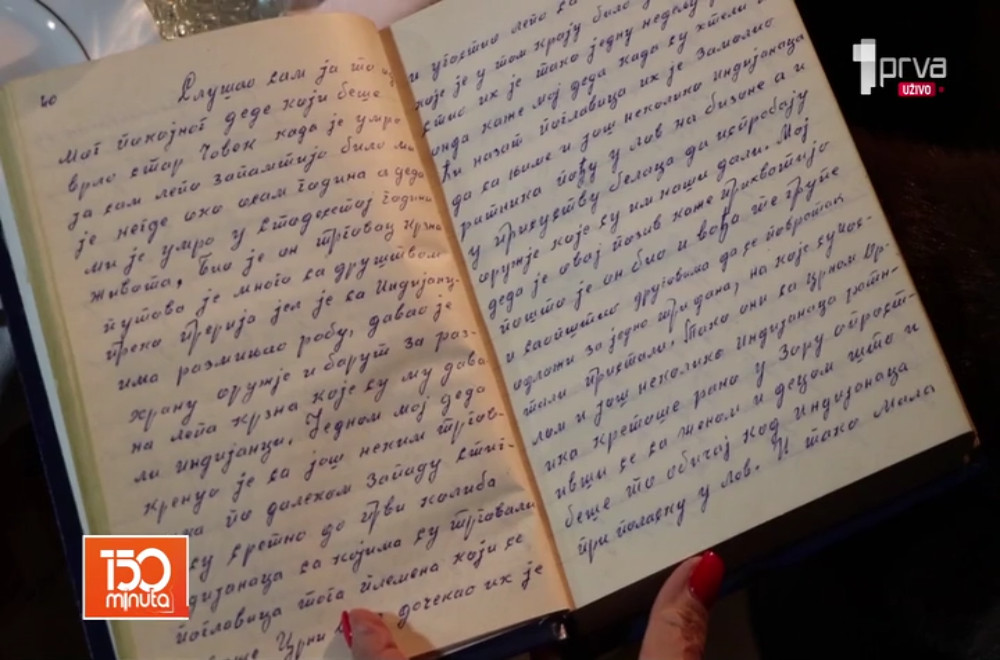 20
Слушао сам ја то од
мог покојног деде који беше
врло стар човек када је умро
ја сам лепо запамтијо било ми
је негде око осам година а деда
ми је умро у стодесетој години
живота, био је он трговац крзна
путово је много са друштвом
преко прерија јел је са Индијанц-
има размињао робу, давао је
храну оружје и барут за раз-
на лепа крзна које су му дава-
ли индијанци. Једном мој деда
кренуо је са још неким тргов-
по далеком Западу стиг-
су сретно до први колиба
дијанаца са којима су трговали
поглавица тога племена који се
Црни дочекао их је
и угостио лепо са
које је у том крају било
стио их је тако једну недељу
онда каже мој деда када су хтели
ћи назат поглавица их је замолио
да са њиме и још неколико индијанаца
ратника пођу у лов на бизоне а и
у присуству белаца да испробају
оружје које су им наши дали. Мој
деда је овај позив каже прихватијо
пошто је он био и вођа те групе
и саопштио друговима да се повратак
одложи за једно три дана, на које су пос-
тали пристали. Тако они са Црном Ор-
лом и још неколико Индијанаца ратн-
ика кретоше рано у зору опрост-
ивши се са женом и децом што и
беше то обичај код индијанаца
при поласку у лов. И тако мала
1prva
UŽIVO
150
minuta